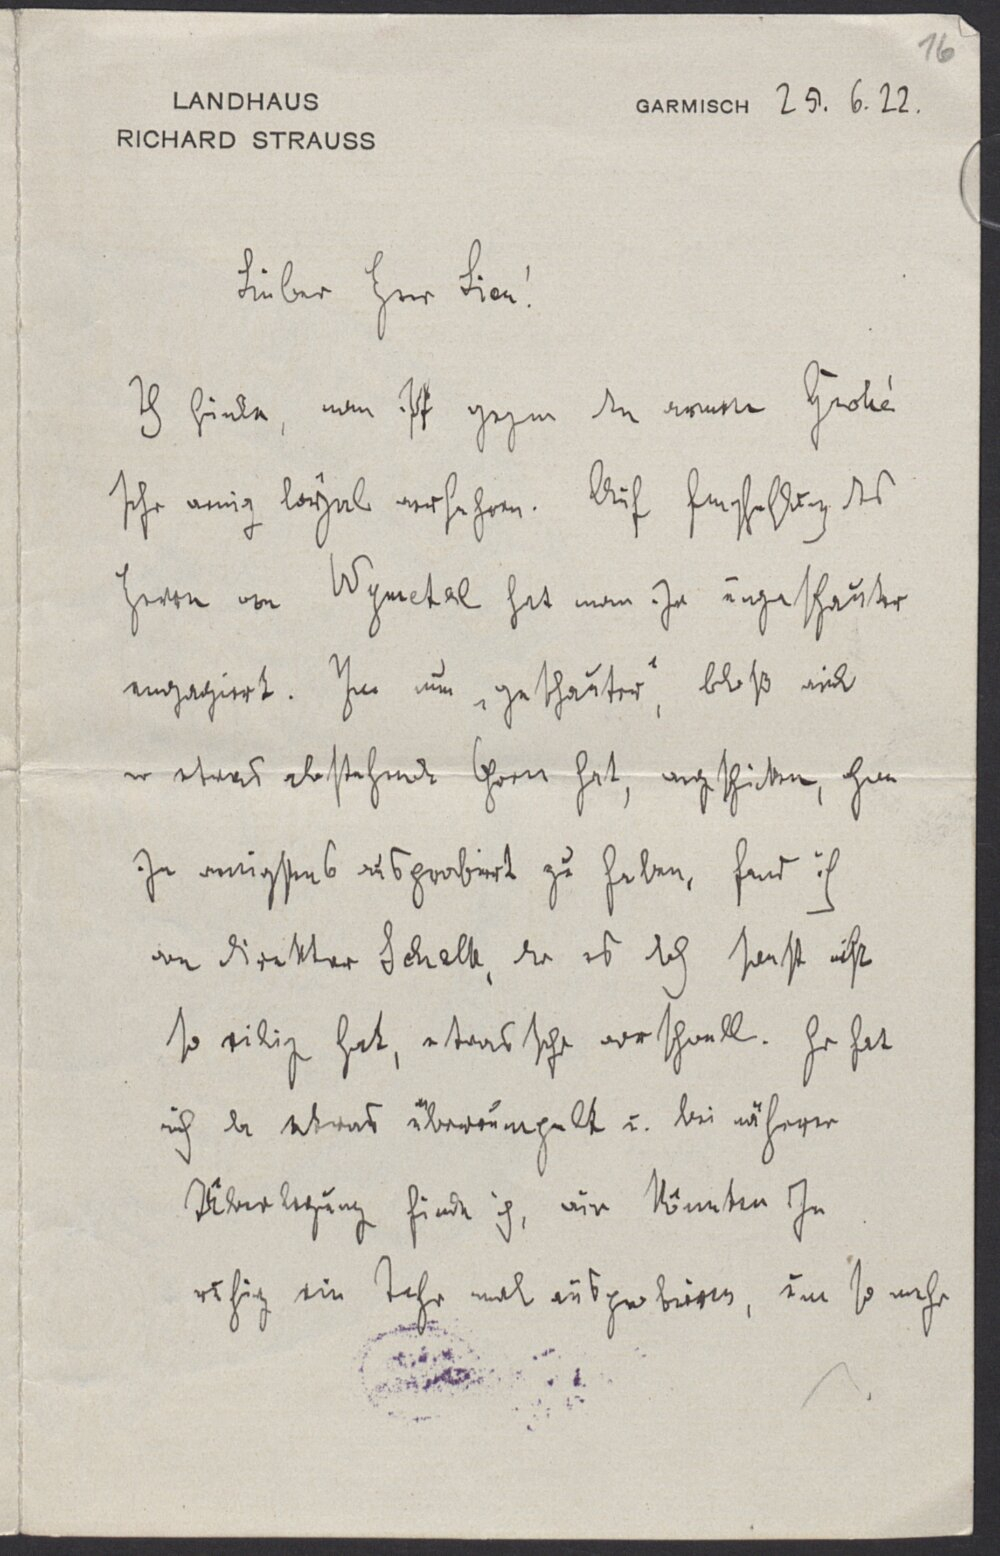 16
LANDHAUS
RICHARD STRAUSS
GARMISCH 25. 6. 22.
Lieber Herr Lion!
Ich finde, man ist gegen den armen Groké
sehr wenig loyal verfahren. Auf Empfehlung des
Herrn von Wymetal hat man ihn ungeschauter
engagiert. Ihn nun „geschauter“, bloß weil
er etwas abstehende Ohren hat, wegschicken, ohne
ihn wenigstens ausprobiert zu haben, fand ich
von Direktor Schalk, der es doch sonst nicht
so eilig hat, etwas sehr vorschnell. Er hat
mich da etwas überrumpelt u. bei näherer
Überlegung finde ich, wir könnten ihn
ruhig ein Jahr mal ausprobieren, um so mehr